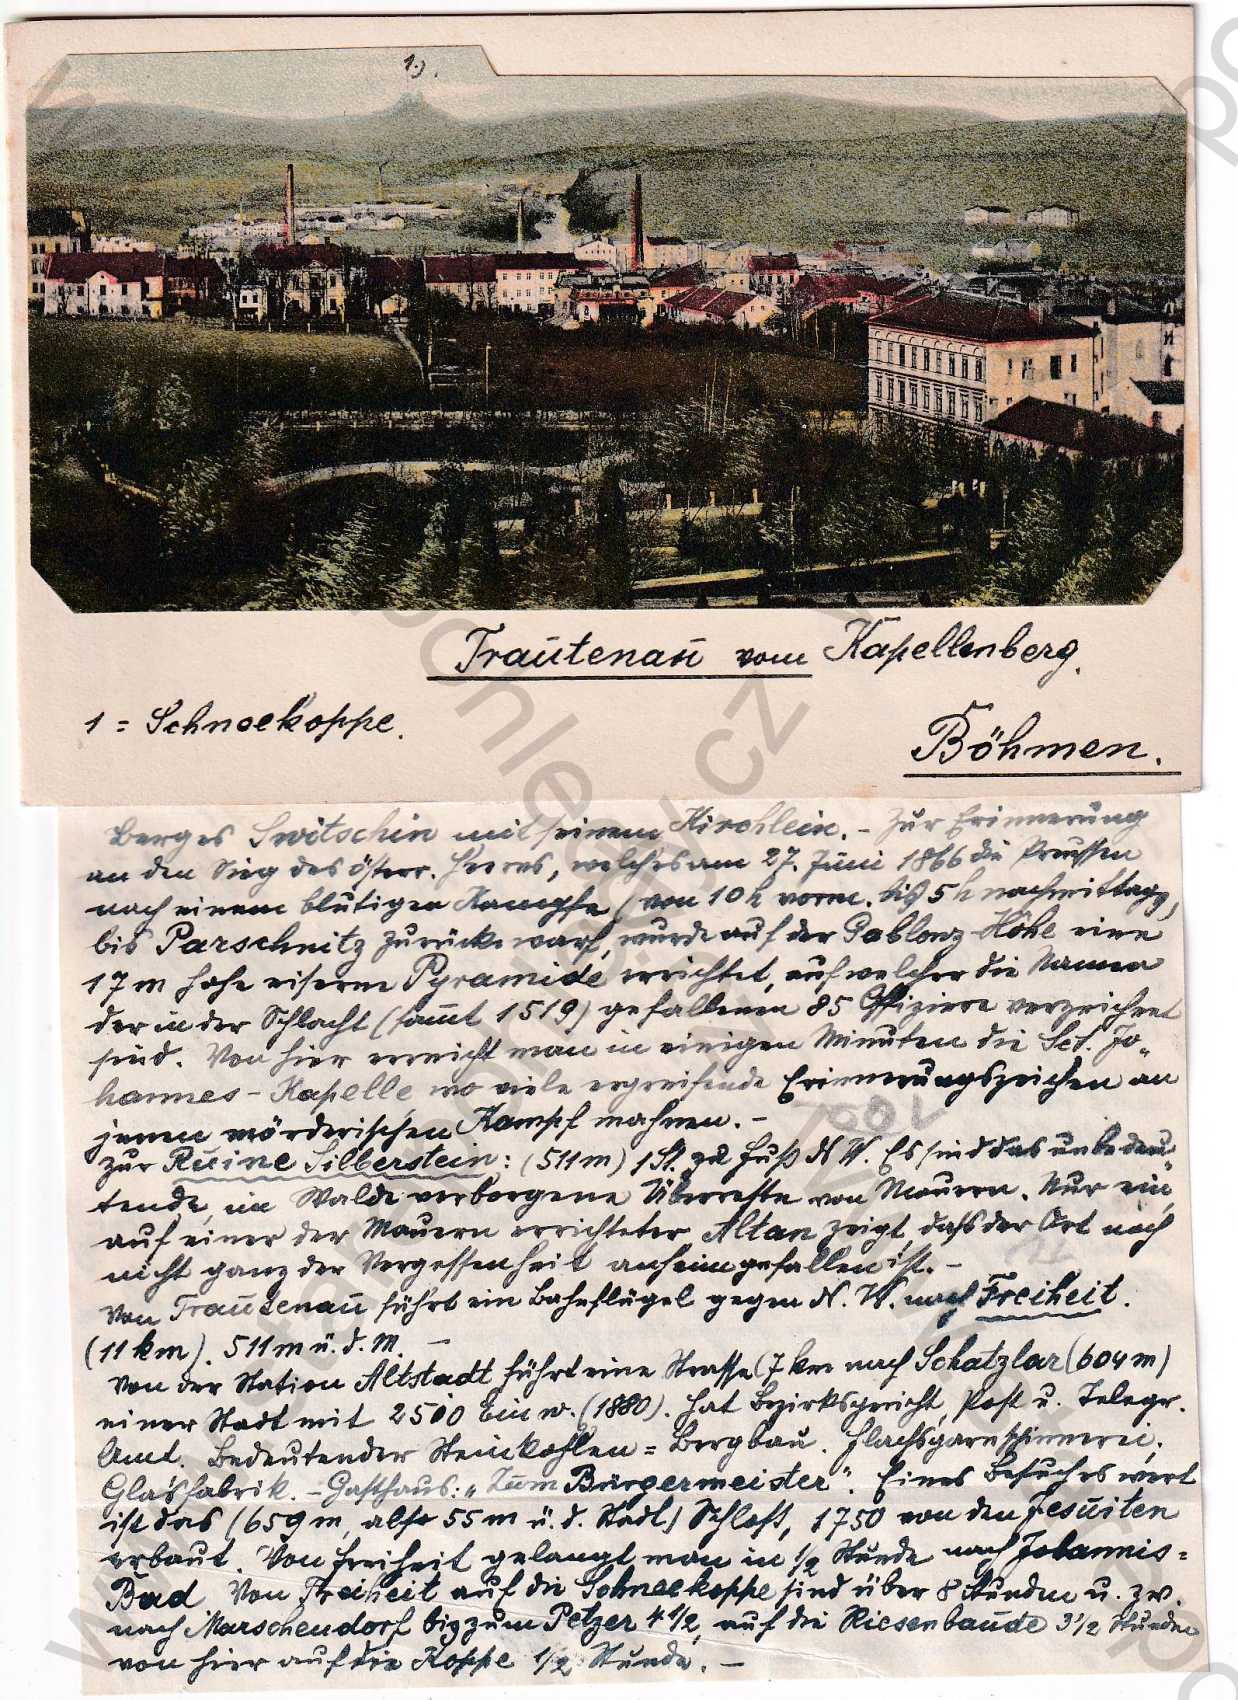 1).
Trautenau vom Kapellenberg.
1 = Schneekoppe.
Böhmen.
Berges Switschin mit seinem Kirchlein. – Zur Erinnerung
an den Sieg des österr. Heeres, welches am 27. Juni 1866 die Preussen
nach einem blutigen Kampfe (von 10 h vorm. bis 5 h nachmittags,
bis Parschnitz zurückwarf, wurde auf der Gablonz-Höhe eine
17 m hohe eiserne Pyramide errichtet, auf welcher die Namen
der in der Schlacht (sammt 1519) gefallenen 85 Offiziere verzeichnet
sind. Von hier erreicht man in einigen Minuten die Sct. Jo-
hannes-Kapelle wo viele ergreifende Erinnerungszeichen an
jenen mörderischen Kampf mahnen. –
Zur Ruine Silberstein: (511 m) 1 St. zu Fuß N. W. Es sind das unbedeu-
tende, im Walde verborgene Überreste von Mauern. Nur ein,
auf einer der Mauern errichteter Altan zeigt, dass der Ort noch
nicht ganz der Vergessenheit anheimgefallen ist. –
Von Trautenau führt ein Bahnflügel gegen N. W. nach Freiheit.
(11 km). 511 m ü. d. M. –
Von der Station Altstadt führt eine Strasse (7 km nach Schatzlar (604 m)
einer Stadt mit 2500 Einw. (1880). Hat Bezirksgericht, Post u. Telegr.
Amt. Bedeutender Steinkohlen = Bergbau. Flachsgarnspinnerei.
Glasfabrik. – Gasthaus: „Zum Bürgermeister". Eines Besuches wert
ist das (659 m, also 55 m ü. d. Stadt) Schloss, 1750 von den Jesuiten
erbaut. Von Freiheit gelangt man in 1/2 Stunde nach Johannis=
Bad Von Freiheit auf die Schneekoppe sind über 8 Stunden u. zw.
nach Marschendorf bis zum Petzer 4 1/2, auf die Riesenbaude 3 1/2 Stunden
von hier auf die Koppe 1/2 Stunde. –